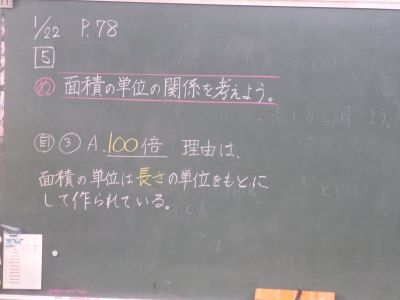 1/22 P.78
5
め 面積の単位の関係を考えよう。
自 ③ A.100倍 理由は、
面積の単位は長さの単位をもとに
して作られている。